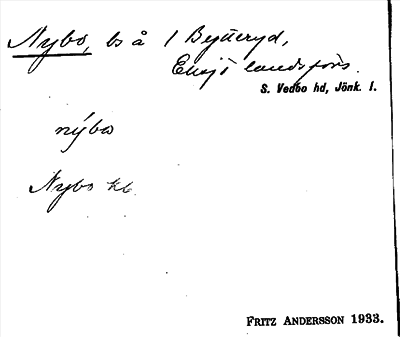 Nybo, bs å 1 Bytteryd,
Eksjö landsförs.
S. Vedbo hd, Jönk. l.
nýbo
Nybo hb.
FRITZ ANDERSSON 1933.